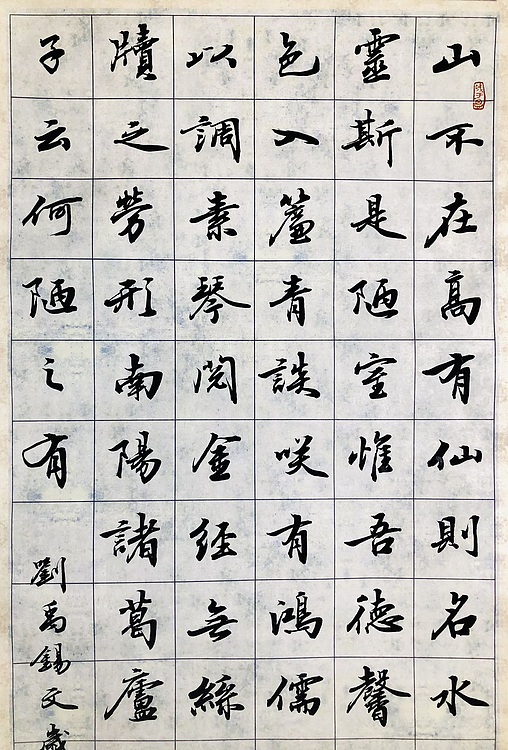 山不在高有仙則名水
靈斯是陋室惟吾德馨
色入簾青談咲有鴻儒
以調素琴閱金經無絲
牘之勞形南陽諸葛廬
子云何陋之有
劉禹錫文歲